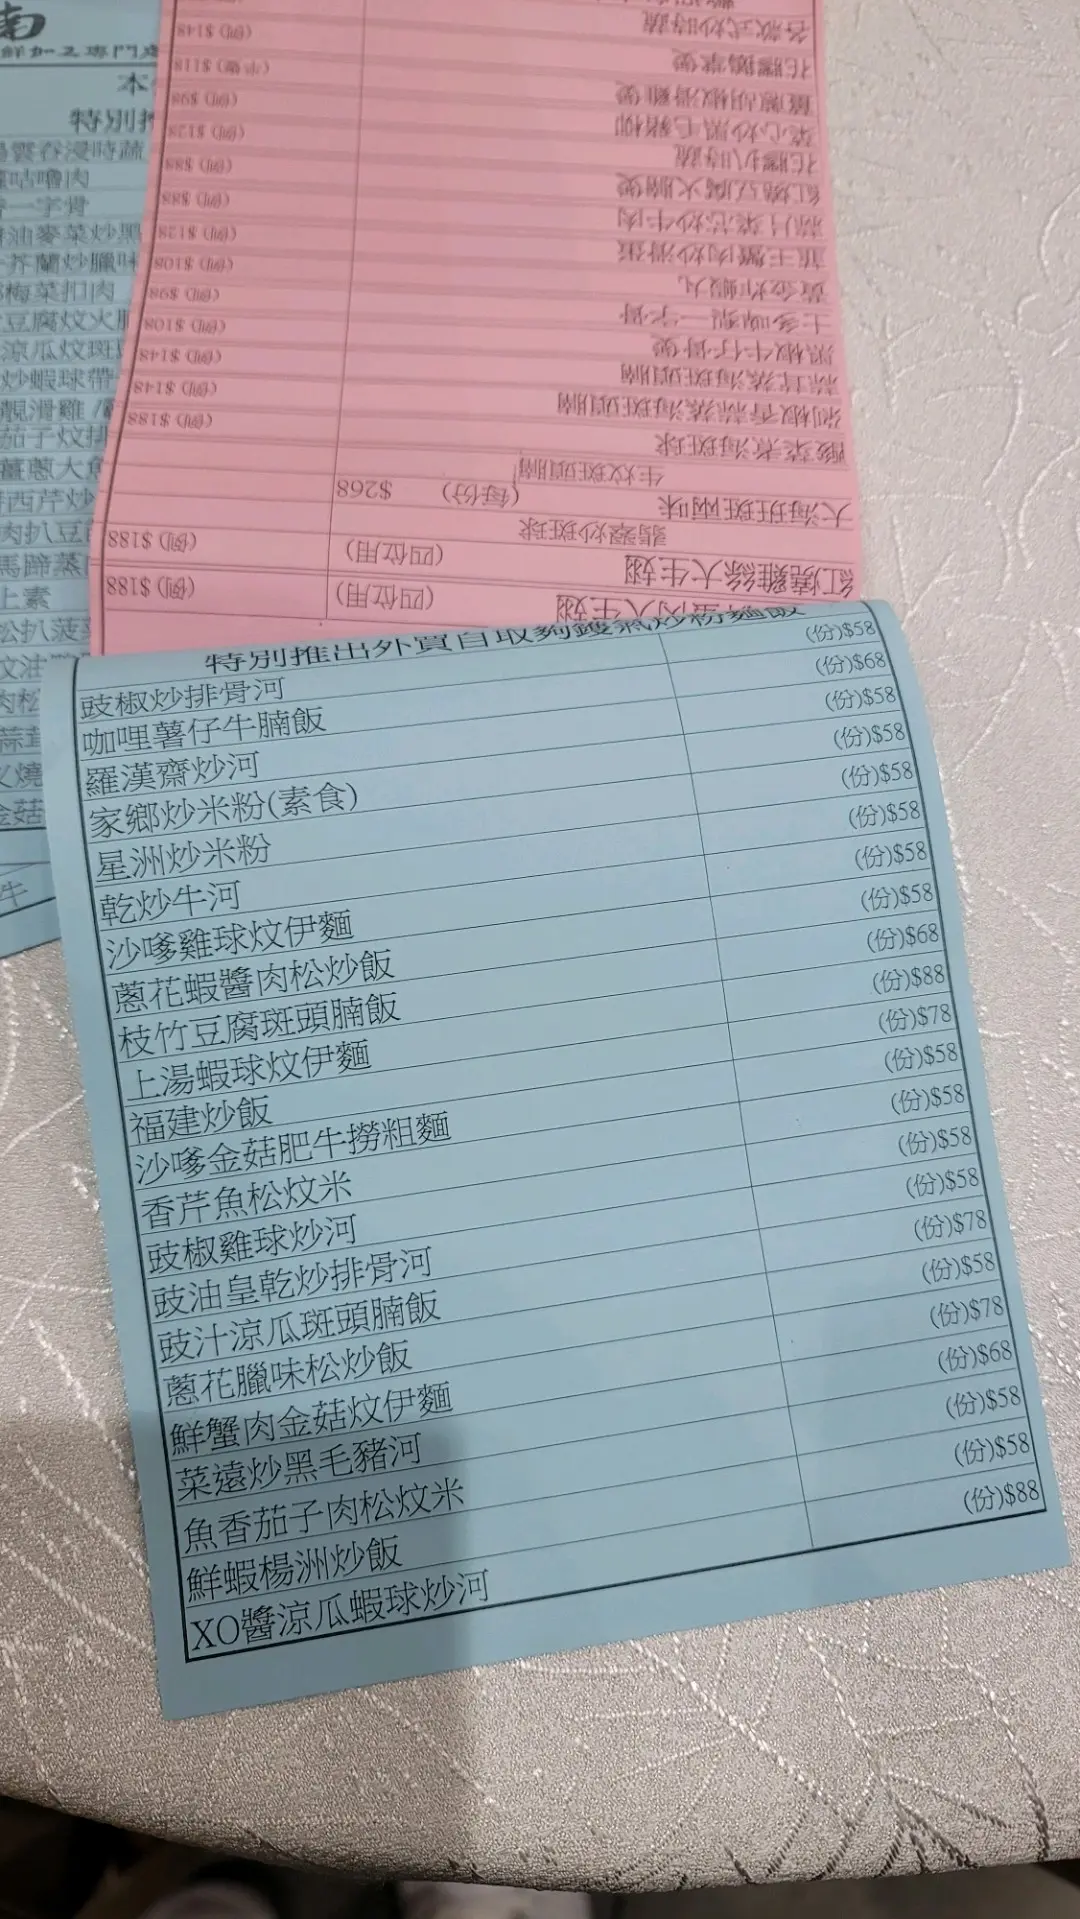 南
本
特別推
雲吞浸時蔬
咕嚕肉
一字骨
油麥菜炒黑
芥蘭炒臘味
梅菜扣肉
豆腐炆火腩
涼瓜炆斑
炒蝦球帶
靚滑雞
茄子炆
薑蔥大魚
西芹炒
肉扒豆
馬蹄蒸
上素
松扒菠
炆油
肉松
叉燒
金菇
牛
肉大生翅 (四位用) (例) $188
紅燒雞絲大生翅 (四位用) (例) $188
翡翠炒斑球
大海斑斑兩味 (每份) $268
生炆斑頭腩
酸菜煮海斑球 (例) $188
剁椒香蒜蒸海斑頭腩 (例) $148
蒜茸蒸海斑頭腩 (例) $148
黑椒牛仔骨煲 (例) $108
士多啤梨一字骨 (例) $98
黃金炸蝦丸 (例) $108
韮王蟹肉炒滑蛋 (例) $128
蒜片菜芯炒牛肉 (例) $88
紅燒豆腐火腩煲 (例) $88
花膠扒時蔬 (例) $128
菜心炒黑毛豬柳 (例) $98
薑蔥胡椒滑雞煲 (半隻) $118
花膠鵝掌煲 (例) $148
各款式炒時蔬
特別推出外賣自取夠鑊氣炒粉麵飯
豉椒炒排骨河 (份)$58
咖哩薯仔牛腩飯 (份)$68
羅漢齋炒河 (份)$58
家鄉炒米粉(素食) (份)$58
星洲炒米粉 (份)$58
乾炒牛河 (份)$58
沙嗲雞球炆伊麵 (份)$58
蔥花蝦醬肉松炒飯 (份)$58
枝竹豆腐斑頭腩飯 (份)$68
上湯蝦球炆伊麵 (份)$88
福建炒飯 (份)$78
沙嗲金菇肥牛撈粗麵 (份)$58
香芹魚松炆米 (份)$58
豉椒雞球炒河 (份)$58
豉油皇乾炒排骨河 (份)$58
豉汁涼瓜斑頭腩飯 (份)$78
蔥花臘味松炒飯 (份)$58
鮮蟹肉金菇炆伊麵 (份)$78
菜遠炒黑毛豬河 (份)$68
魚香茄子肉松炆米 (份)$58
鮮蝦楊洲炒飯 (份)$58
XO醬涼瓜蝦球炒河 (份)$88